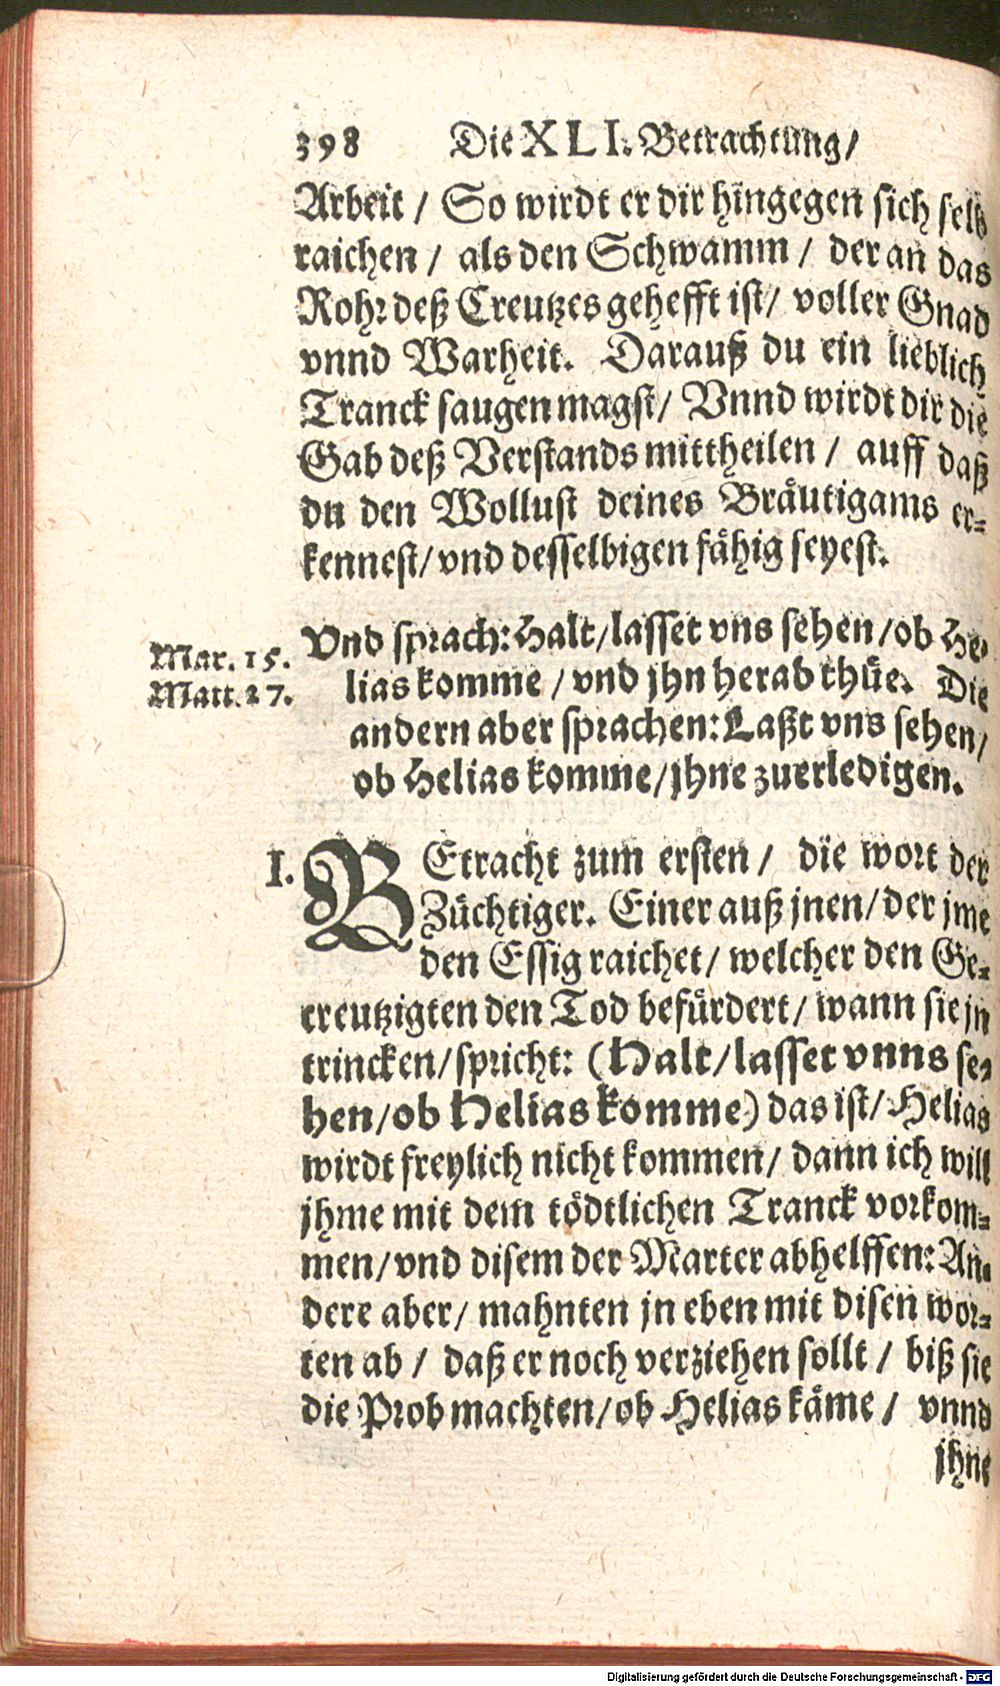 398 Die XLI. Betrachtung/
Arbeit / So wirdt er dir hingegen sich selb
raichen / als den Schwamm / der an das
Rohr deß Creutzes gehefft ist/ voller Gnad
vnnd Warheit. Darauß du ein lieblich
Tranck saugen magst/ Vnnd wirdt dir die
Gab deß Verstands mittheilen / auff daß
du den Wollust deines Bräutigams er-
kennest/ vnd desselbigen fähig seyest.
Mar. 15.
Matt. 27.
Vnd sprach: Halt/lasset vns sehen/ob He-
lias komme / vnd jhn herab thüe. Die
andern aber sprachen: Laßt vns sehen/
ob Helias komme/jhne zuerledigen.
I. BEtracht zum ersten / die wort der
Züchtiger. Einer auß jnen/ der jme
den Essig raichet/ welcher den Ge-
creutzigten den Tod befürdert/ wann sie jn
trincken/ spricht: (Halt/lasset vnns se-
hen/ob Helias komme) das ist/ Helias
wirdt freylich nicht kommen/ dann ich will
jhme mit dem tödtlichen Tranck vorkom-
men/ vnd disem der Marter abhelffen: An-
dere aber/ mahnten jn eben mit disen wor-
ten ab / daß er noch verziehen sollt / biß sie
die Prob machten/ ob Helias käme / vnnd
jhne
Digitalisierung gefördert durch die Deutsche Forschungsgemeinschaft - DFG